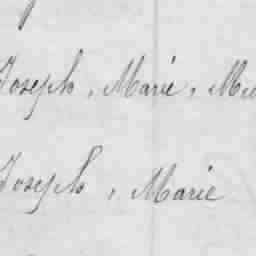 Joseph, Marie,
Joseph, Marie